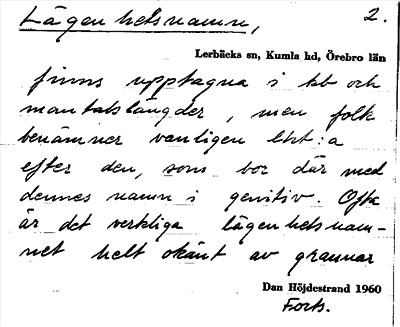 Lägenhetsnamn, 2.
Lerbäcks sn, Kumla hd, Örebro län
finns upptagna i kb och
mantalslängder, men folk
benämner vanligen lht:a
efter den, som bor där med
dennes namn i genitiv. Ofta
är det verkliga lägenhetsnam-
net helt okänt av grannar
Dan Höjdestrand 1960
Forts.